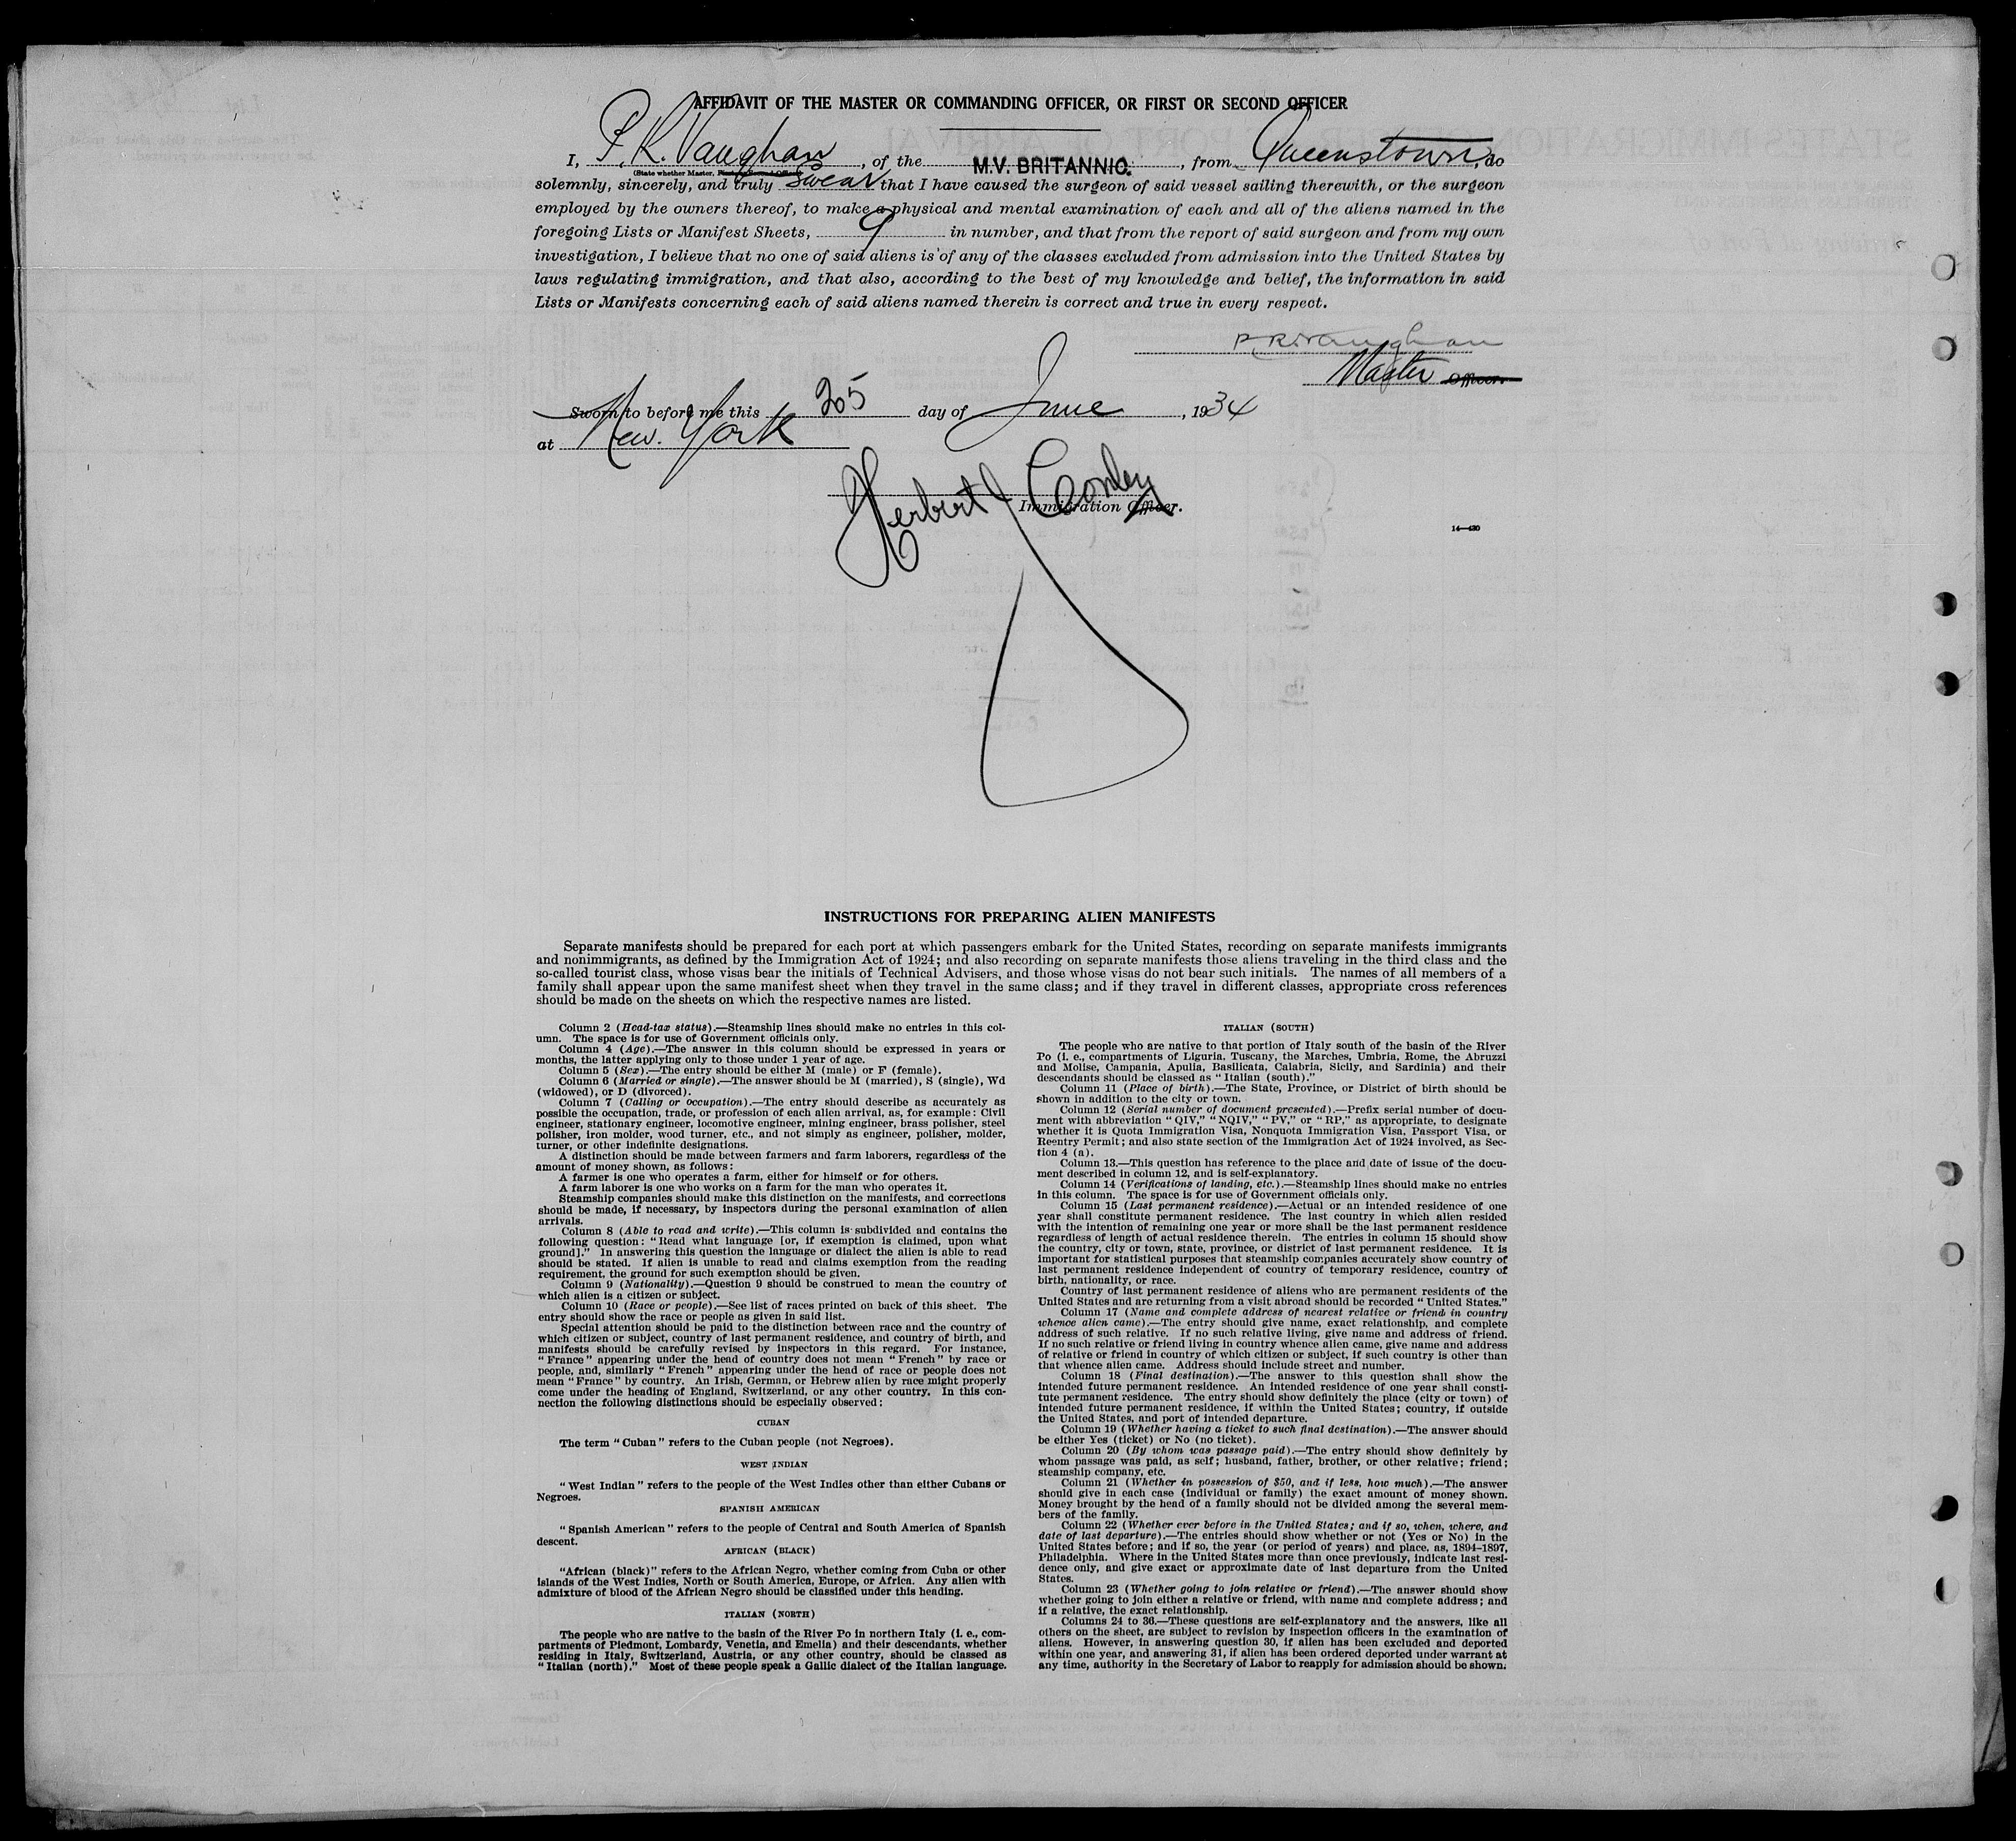 AFFIDAVIT OF THE MASTER OR COMMANDING OFFICER, OR FIRST OR SECOND OFFICER
I, P. R. Vaughan, of the M.V. BRITANNIC., from Queenstown, do
(State whether Master, First or Second Officer)
solemnly, sincerely, and truly swear that I have caused the surgeon of said vessel sailing therewith, or the surgeon
employed by the owners thereof, to make a physical and mental examination of each and all of the aliens named in the
foregoing Lists or Manifest Sheets, 9 in number, and that from the report of said surgeon and from my own
investigation, I believe that no one of said aliens is of any of the classes excluded from admission into the United States by
laws regulating immigration, and that also, according to the best of my knowledge and belief, the information in said
Lists or Manifests concerning each of said aliens named therein is correct and true in every respect.
P R Vaughan
Master Officer.
Sworn to before me this 25 day of June, 1934
at New York
Herbert J Conley
Immigration Officer.
14—430
INSTRUCTIONS FOR PREPARING ALIEN MANIFESTS
Separate manifests should be prepared for each port at which passengers embark for the United States, recording on separate manifests immigrants
and nonimmigrants, as defined by the Immigration Act of 1924; and also recording on separate manifests those aliens traveling in the third class and the
so-called tourist class, whose visas bear the initials of Technical Advisers, and those whose visas do not bear such initials. The names of all members of a
family shall appear upon the same manifest sheet when they travel in the same class; and if they travel in different classes, appropriate cross references
should be made on the sheets on which the respective names are listed.
Column 2 (Head-tax status).—Steamship lines should make no entries in this col-
umn. The space is for use of Government officials only.
Column 4 (Age).—The answer in this column should be expressed in years or
months, the latter applying only to those under 1 year of age.
Column 5 (Sex).—The entry should be either M (male) or F (female).
Column 6 (Married or single).—The answer should be M (married), S (single), Wd
(widowed), or D (divorced).
Column 7 (Calling or occupation).—The entry should describe as accurately as
possible the occupation, trade, or profession of each alien arrival, as, for example: Civil
engineer, stationary engineer, locomotive engineer, mining engineer, brass polisher, steel
polisher, iron molder, wood turner, etc., and not simply as engineer, polisher, molder,
turner, or other indefinite designations.
A distinction should be made between farmers and farm laborers, regardless of the
amount of money shown, as follows:
A farmer is one who operates a farm, either for himself or for others.
A farm laborer is one who works on a farm for the man who operates it.
Steamship companies should make this distinction on the manifests, and corrections
should be made, if necessary, by inspectors during the personal examination of alien
arrivals.
Column 8 (Able to read and write).—This column is subdivided and contains the
following question: "Read what language [or, if exemption is claimed, upon what
ground]." In answering this question the language or dialect the alien is able to read
should be stated. If alien is unable to read and claims exemption from the reading
requirement, the ground for such exemption should be given.
Column 9 (Nationality).—Question 9 should be construed to mean the country of
which alien is a citizen or subject.
Column 10 (Race or people).—See list of races printed on back of this sheet. The
entry should show the race or people as given in said list.
Special attention should be paid to the distinction between race and the country of
which citizen or subject, country of last permanent residence, and country of birth, and
manifests should be carefully revised by inspectors in this regard. For instance,
"France" appearing under the head of country does not mean "French" by race or
people, and, similarly "French" appearing under the head of race or people does not
mean "France" by country. An Irish, German, or Hebrew alien by race might properly
come under the heading of England, Switzerland, or any other country. In this con-
nection the following distinctions should be especially observed:
CUBAN
The term "Cuban" refers to the Cuban people (not Negroes).
WEST INDIAN
"West Indian" refers to the people of the West Indies other than either Cubans or
Negroes.
SPANISH AMERICAN
"Spanish American" refers to the people of Central and South America of Spanish
descent.
AFRICAN (BLACK)
"African (black)" refers to the African Negro, whether coming from Cuba or other
islands of the West Indies, North or South America, Europe, or Africa. Any alien with
admixture of blood of the African Negro should be classified under this heading.
ITALIAN (NORTH)
The people who are native to the basin of the River Po in northern Italy (i. e., com-
partments of Piedmont, Lombardy, Venetia, and Emelia) and their descendants, whether
residing in Italy, Switzerland, Austria, or any other country, should be classed as
"Italian (north)." Most of these people speak a Gallic dialect of the Italian language.
ITALIAN (SOUTH)
The people who are native to that portion of Italy south of the basin of the River
Po (i. e., compartments of Liguria, Tuscany, the Marches, Umbria, Rome, the Abruzzi
and Molise, Campania, Apulia, Basilicata, Calabria, Sicily, and Sardinia) and their
descendants should be classed as "Italian (south)."
Column 11 (Place of birth).—The State, Province, or District of birth should be
shown in addition to the city or town.
Column 12 (Serial number of document presented).—Prefix serial number of docu-
ment with abbreviation "QIV," "NQIV," "PV," or "RP," as appropriate, to designate
whether it is Quota Immigration Visa, Nonquota Immigration Visa, Passport Visa, or
Reentry Permit; and also state section of the Immigration Act of 1924 involved, as Sec-
tion 4 (a).
Column 13.—This question has reference to the place and date of issue of the docu-
ment described in column 12, and is self-explanatory.
Column 14 (Verifications of landing, etc.).—Steamship lines should make no entries
in this column. The space is for use of Government officials only.
Column 15 (Last permanent residence).—Actual or an intended residence of one
year shall constitute permanent residence. The last country in which alien resided
with the intention of remaining one year or more shall be the last permanent residence
regardless of length of actual residence therein. The entries in column 15 should show
the country, city or town, state, province, or district of last permanent residence. It is
important for statistical purposes that steamship companies accurately show country of
last permanent residence independent of country of temporary residence, country of
birth, nationality, or race.
Country of last permanent residence of aliens who are permanent residents of the
United States and are returning from a visit abroad should be recorded "United States."
Column 17 (Name and complete address of nearest relative or friend in country
whence alien came).—The entry should give name, exact relationship, and complete
address of such relative. If no such relative living, give name and address of friend.
If no such relative or friend living in country whence alien came, give name and address
of relative or friend in country of which citizen or subject, if such country is other than
that whence alien came. Address should include street and number.
Column 18 (Final destination).—The answer to this question shall show the
intended future permanent residence. An intended residence of one year shall consti-
tute permanent residence. The entry should show definitely the place (city or town) of
intended future permanent residence, if within the United States; country, if outside
the United States, and port of intended departure.
Column 19 (Whether having a ticket to such final destination).—The answer should
be either Yes (ticket) or No (no ticket).
Column 20 (By whom was passage paid).—The entry should show definitely by
whom passage was paid, as self; husband, father, brother, or other relative; friend;
steamship company, etc.
Column 21 (Whether in possession of $50, and if less, how much).—The answer
should give in each case (individual or family) the exact amount of money shown.
Money brought by the head of a family should not be divided among the several mem-
bers of the family.
Column 22 (Whether ever before in the United States; and if so, when, where, and
date of last departure).—The entries should show whether or not (Yes or No) in the
United States before; and if so, the year (or period of years) and place, as, 1894–1897,
Philadelphia. Where in the United States more than once previously, indicate last resi-
dence only, and give exact or approximate date of last departure from the United
States.
Column 23 (Whether going to join relative or friend).—The answer should show
whether going to join either a relative or friend, with name and complete address; and
if a relative, the exact relationship.
Columns 24 to 36.—These questions are self-explanatory and the answers, like all
others on the sheet, are subject to revision by inspection officers in the examination of
aliens. However, in answering question 30, if alien has been excluded and deported
within one year, and answering 31, if alien has been ordered deported under warrant at
any time, authority in the Secretary of Labor to reapply for admission should be shown.